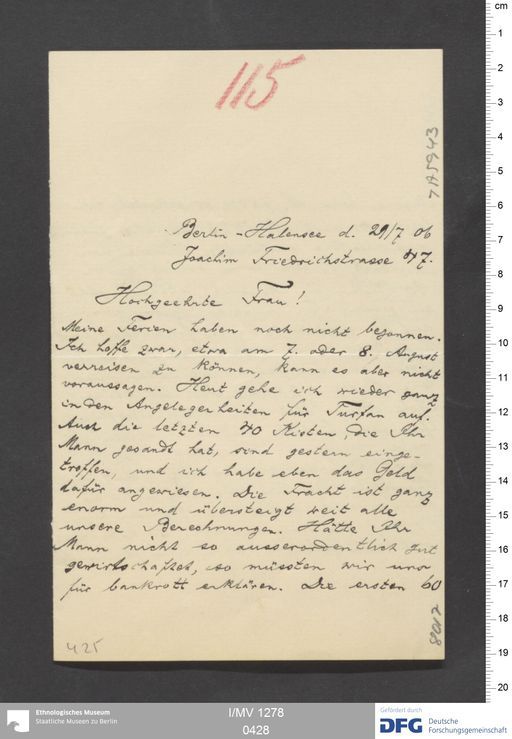 115
7A5943
Berlin-Halensee d. 29/7 06
Joachim Friedrichstrasse 47.
Hochgeehrte Frau!
Meine Ferien haben noch nicht begonnen.
Ich hoffe zwar, etwa am 7. oder 8. August
verreisen zu können, kann es aber nicht
voraussagen. Heut gehe ich wieder ganz
in den Angelegenheiten für Turfan auf.
Auch die letzten 70 Kisten, die Ihr
Mann gesandt hat, sind gestern einge-
troffen, und ich habe eben das Geld
dafür angewiesen. Die Fracht ist ganz
enorm und übersteigt weit alle
unsere Berechnungen. Hätte Ihr
Mann nicht so ausserordentlich gut
gewirtschaftet, so müssten wir uns
für bankrott erklären. Die ersten 60
425
cm
1
2
3
4
5
6
7
8
9
10
11
12
13
14
15
16
17
18
19
20
Ethnologisches Museum
Staatliche Museen zu Berlin
I/MV 1278
0428
Gefördert durch
DFG Deutsche
Forschungsgemeinschaft